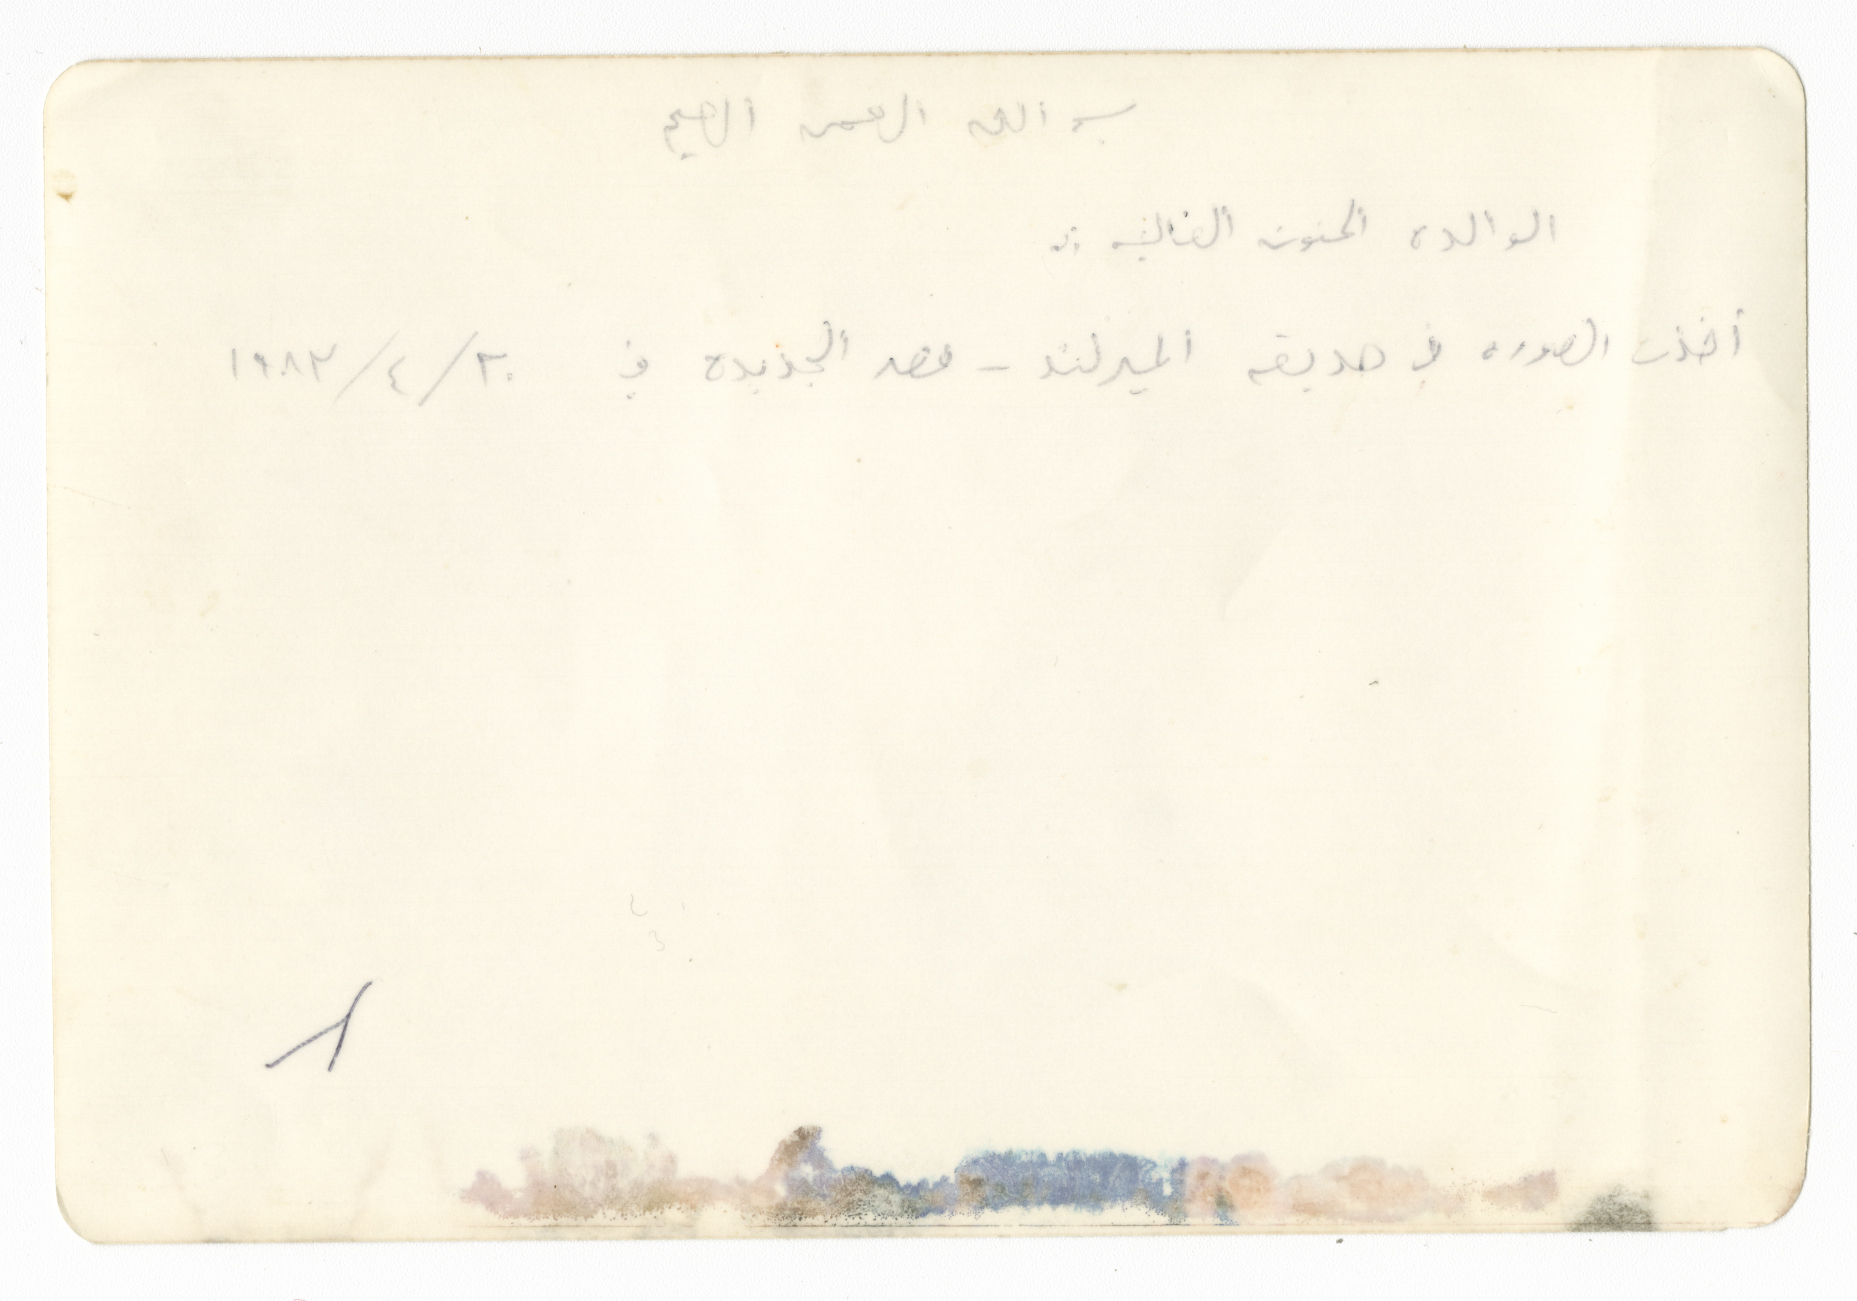 بسم الله الرحمن الرحيم
الوالده الحنونه الغاليه :ـ
أخذت الصوره في حديقه الميرلند - مصر الجديدة في ٢٠/٤/١٩٨٣